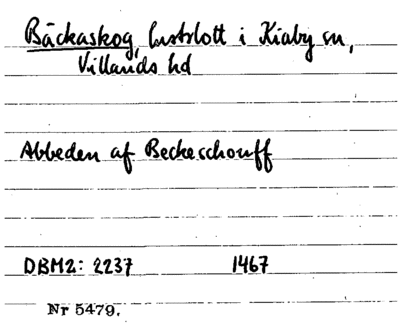 Bäckaskog, lustslott i Kiaby sn,
Villands hd
Abbeden af Beckeschouff
DBM2: 2237 1467
Nr 5479.